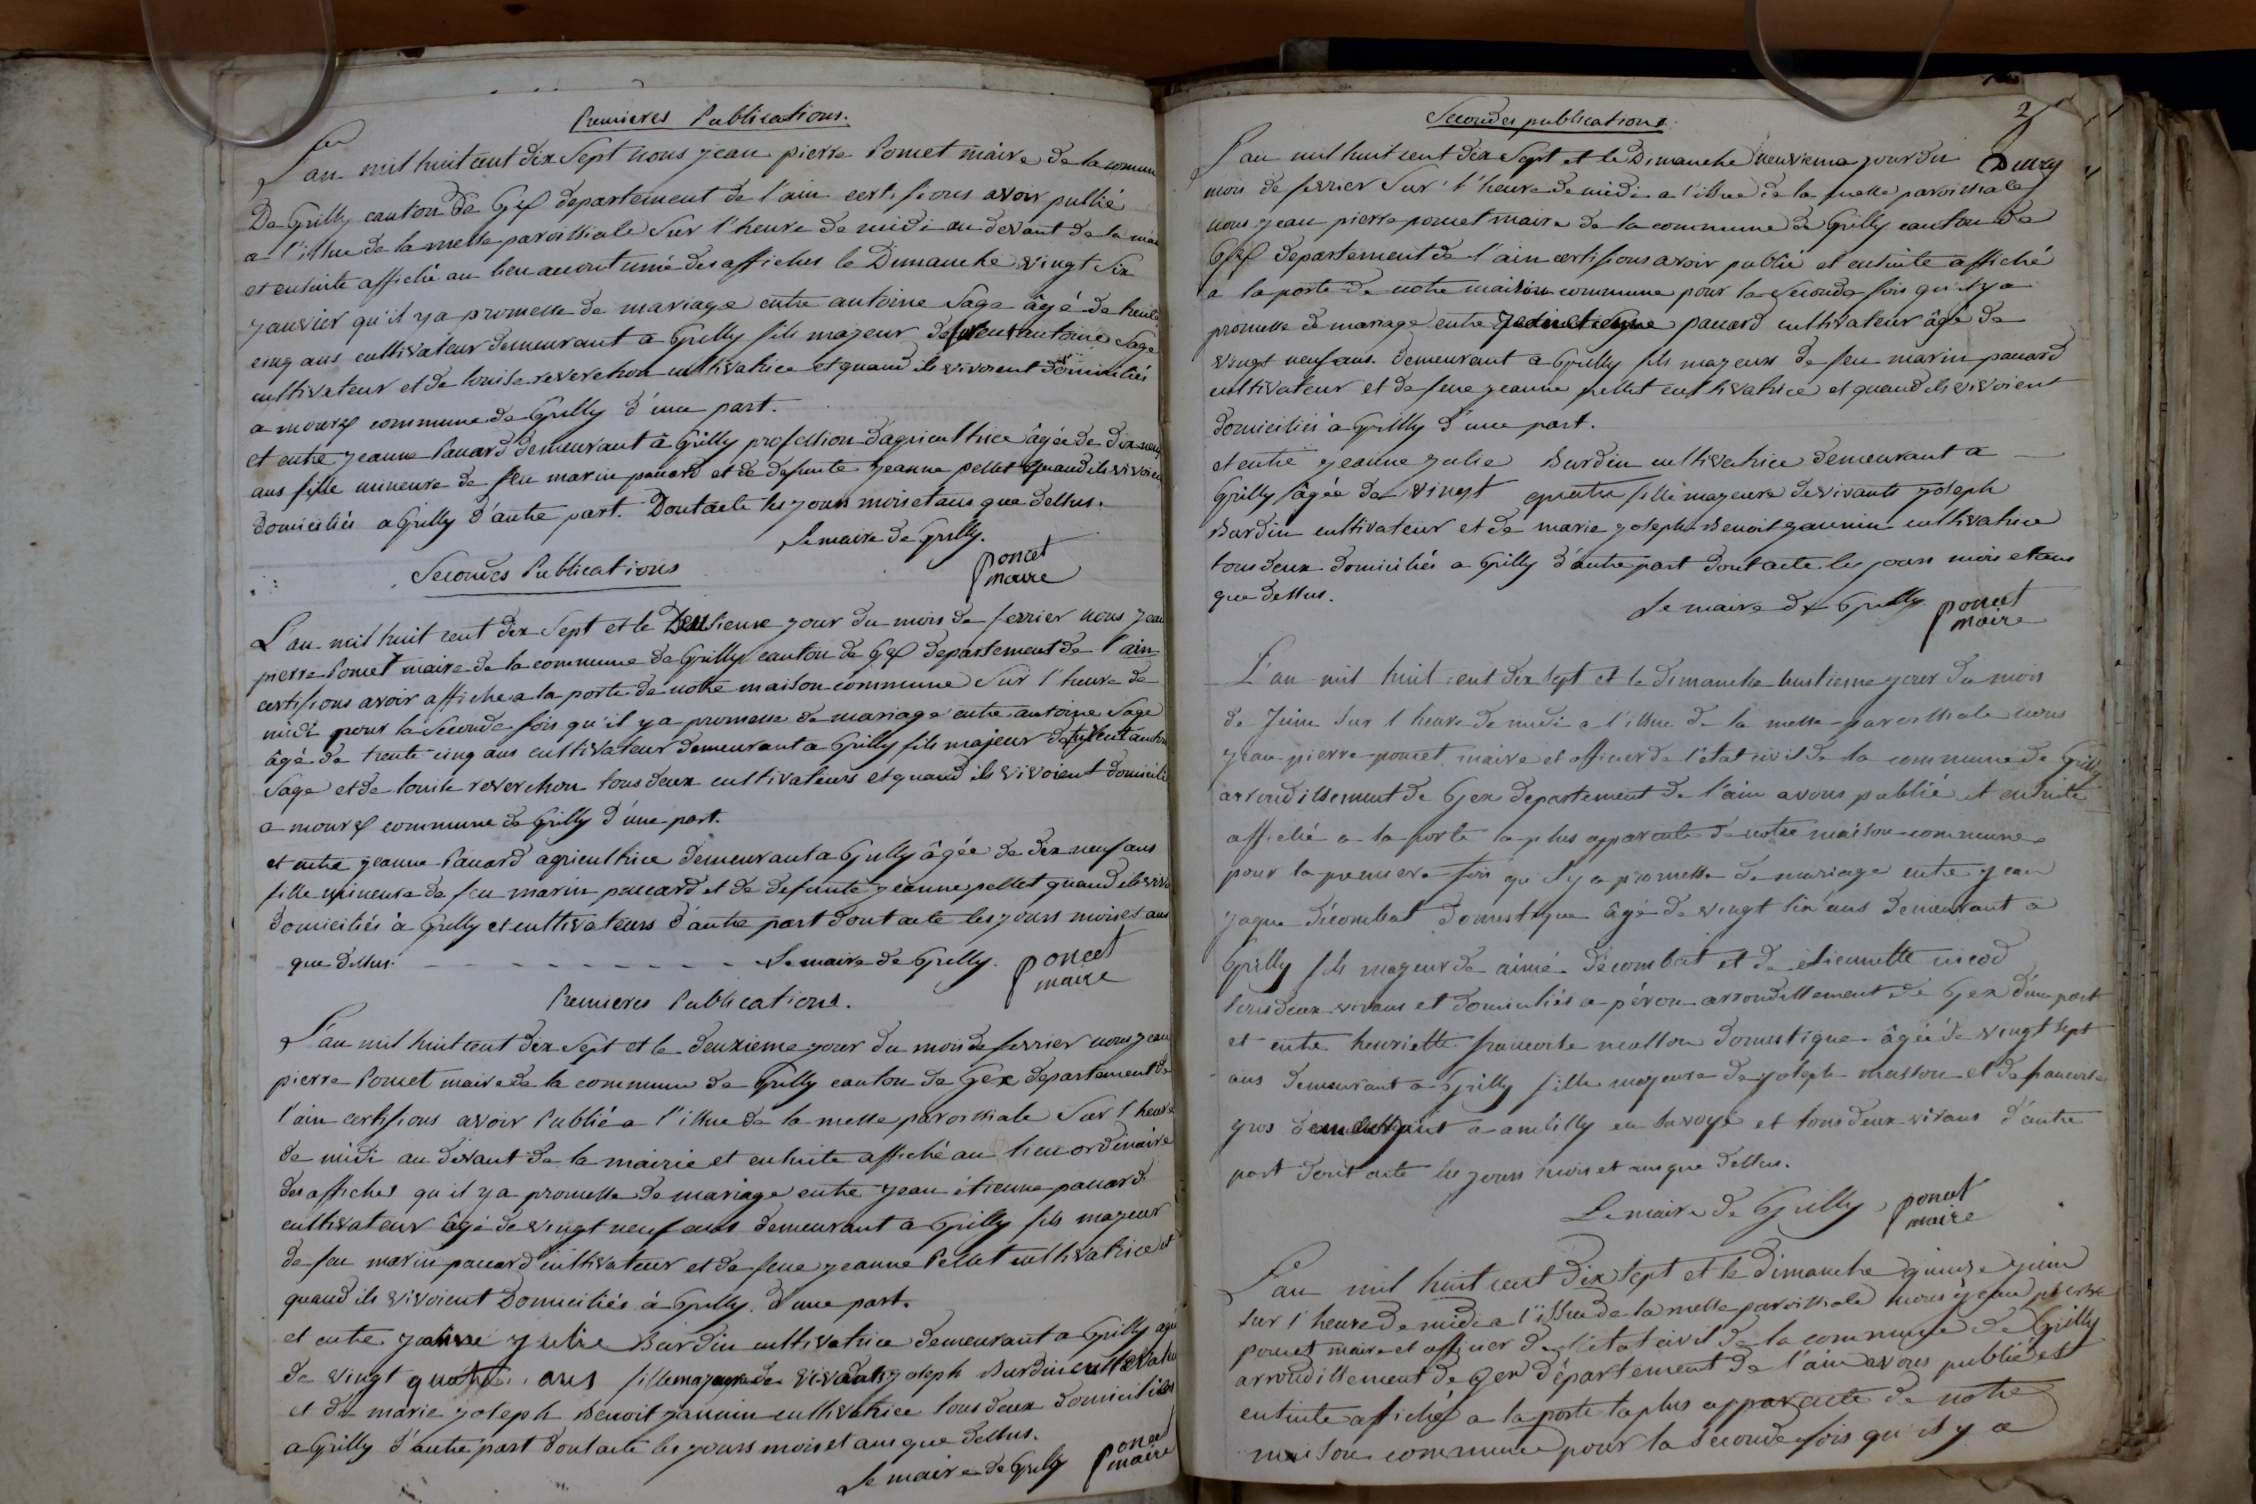 Premieres Publications.
L'an mil huit cent dix Sept nous jean pierre Poncet maire de la commune
De Grilly canton de Gex departement de l'ain certifions avoir publié
a l'issue de la messe paroissiale Sur l'heure de midi au devant de la mai
et ensuite affiché au lieu accoutumé des affiches le Dimanche vingt Six
janvier qu'il y a promesse de mariage entre antoine Sage âgé de trente
cinq ans cultivateur demeurant a Grilly fils majeur de antoine Sage
cultivateur et de louise reverchon cultivatrice et quand ils vivoient domiciliés
a mourex commune de Grilly d'une part.
et entre jeanne Panard demeurant à Grilly profession d'agricultrice âgée de dix neuf
ans fille mineure de feu marin panard et de defunte jeanne pellet quand ils vivoient
domiciliés a Grilly d'autre part. Dont acte les jours mois et ans que dessus.
Le maire de Grilly.
poncet
maire
Secondes Publications
L'an mil huit cent dix Sept et le Deusieme jour du mois de fevrier nous jean
pierre Poncet maire de la commune de Grilly canton de Gex departement de l'ain
certifions avoir affiché a la porte de notre maison commune Sur l'heure de
midi pour la Seconde fois qu'il y a promesse de mariage entre antoine Sage
âgé de trente cinq ans cultivateur demeurant a Grilly fils majeur de
Sage et de louise reverchon tous deux cultivateurs et quand ils vivoient domicilié
a mourex commune de Grilly d'une part.
et entre jeanne Panard agricultrice demeurant a Grilly âgée de dix neuf ans
fille mineure de feu marin panard et de defunte jeanne pellet quand ils viv
domiciliés à Grilly et cultivateurs d'autre part dont acte les jours mois et ans
que dessus. Le maire de Grilly. poncet
maire
Premieres Publications.
L'an mil huit cent dix Sept et le deuxieme jour du mois de fevrier nous jean
pierre Poncet maire de la commune de Grilly canton de Gex departement de
l'ain certifions avoir Publié a l'issue de la messe paroissiale Sur l'heure
de midi au devant de la mairie et ensuite affiché au lieu ordinaire
des affiches qu'il y a promesse de mariage entre jean étienne panard
cultivateur âgé de vingt neuf ans demeurant a Grilly fils majeur
de feu marin panard cultivateur et de feue jeanne Pellet cultivatrice et
quand ils vivoient Domiciliés à Grilly. d'une part.
et entre jeanne julie Burdin cultivatrice demeurant a Grilly agé
de vingt quatre ans fille majeure de vivants joseph Burdin cultivateur
et de marie joseph Benoit janin cultivatrice tous deux domiciliés
a Grilly d'autre part dont acte les jours mois et ans que dessus.
Le maire de Grilly poncet
maire
2
Secondes publications.
L'an mil huit cent dix Sept et le Dimanche neuvieme jour du
mois de fevrier Sur l'heure de midi a l'issue de la messe paroissiale
nous jean pierre poncet maire de la commune de Grilly canton de
Gex departement de l'ain certifions avoir publié et ensuite affiché
a la porte de notre maison commune pour la Seconde fois qu'il y a
promesse de mariage entre jean etienne panard cultivateur âgé de
vingt neuf ans. demeurant a Grilly fils majeurs de feu marin panard
cultivateur et de feue jeanne pellet cultivatrice et quand ils vivoient
domiciliés à Grilly d'une part.
et entre jeanne julie Burdin cultivatrice demeurant a
Grilly, âgée de vingt quatre fille majeure de vivants joseph
Burdin cultivateur et de marie joseph Benoit janin cultivatrice
tous deux domiciliés a Grilly d'autre part dont acte les jours mois et ans
que dessus. Le maire de Grilly poncet
maire
L'an mil huit cent dix sept et le dimanche huitieme jour du mois
de Juin Sur l'heure de midi a l'issue de la messe paroissiale nous
jean pierre poncet maire et officier de l'état civil de la commune de Grilly
arrondissement de Gex departement de l'ain avons publié et ensuite
affiché a la porte la plus apparente de notre maison commune
pour la premiere fois qu'il y a promesse de mariage entre jean
jaque décombat domestique âgé de vingt six ans demeurant a
Grilly fils majeur de aimé décombat et de etiennette nicod
tous deux vivans et domiciliés a péron arrondissement de Gex d'une part
et entre henriette francoise masson domestique âgée de vingt sept
ans demeurant a Grilly fille majeure de joseph masson et de francoise
gros demeurant a ambilly en savoye et tous deux vivans d'autre
part dont acte les jours mois et ans que dessus.
Le maire de Grilly poncet
maire
L'an mil huit cent dix sept et le dimanche quinze juin
sur l'heure de midi a l'issue de la messe paroissiale nous jean pierre
poncet maire et officier de l'état civil de la commune de Grilly
arrondissement de Gex département de l'ain avons publié et
ensuite affiché a la porte la plus apparente de notre
maison commune pour la seconde fois qu'il y a